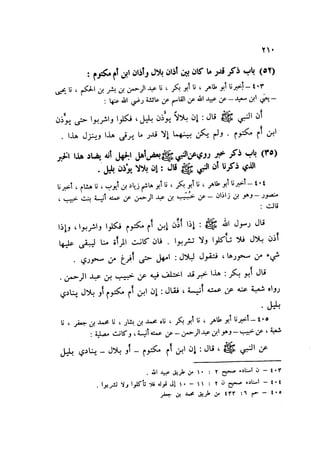 ٢١٠
(٥٢) باب ذكر قدر ما كان بين أذان بلال وأذان ابن أم مكتوم :
٤٠٣ - أخبرنا أبو طاهر ، نا أبو بكر ، نا عبد الرحمن بن بشر بن الحكم ، نا يحيى
- يعني ابن سعيد - عن عبيد الله عن القاسم عن عائشة رضي الله عنها :
أن النبي ﷺ قال : إن بلالاً يؤذن بليل ، فكلوا واشربوا حتى يؤذن
ابن أم مكتوم . ولم يكن بينهما إلا قدر ما يرقى هذا وينزل هذا .
(٣٥) باب ذكر خبر روي عن النبي ﷺ بعض أهل الجهل أنه يضاد هذا الخبر
الذي ذكرنا أن النبي ﷺ قال : إن بلالا يؤذن بليل .
٤٠٤ - أخبرنا أبو طاهر ، نا أبو بكر ، نا أبو هاشم زياد بن أيوب ، نا هشام ، أخبرنا
منصور - وهو بن زاذان - عن خبيب بن عبد الرحمن عن عمته أنيسة بنت خبيب ،
قالت :
قال رسول الله ﷺ : إذا أذن إبن أم مكتوم فكلوا واشربوا ، وإذا
أذن بلال فلا تأكلوا ولا تشربوا . فإن كانت المرأة منا ليبقى عليها
شيء من سحورها ، فتقول لبلال : امهل حتى أفرغ من سحوري .
قال أبو بكر : هذا خبر قد اختلف فيه عن خبيب بن عبد الرحمن .
رواه شعبة عنه عن عمته أنيسة ، فقال : إن ابن أم مكتوم أو بلال ينادي
بليل .
٤٠٥ - أخبرنا أبو طاهر ، نا أبو بكر ، ناه محمد بن بشار ، نا محمد بن جعفر ، نا
شعبة ، عن خبيب - وهو ابن عبد الرحمن - عن عمته أنيسة ، وكانت مصلية :
عن النبي ﷺ ، قال : إن ابن أم مكتوم - أو بلال - ينادي بليل
٤٠٣ - ن اسناده صحيح ٢ : ١٠ من طريق عبيد الله .
٤٠٤ - اسناده صحيح ن ٢ : ١٠ - ١١ إلى قوله فلا تأكلوا ولا تشربوا .
٤٠٥ - حم ٦ : ٤٣٣ من طريق محمد بن جعفر